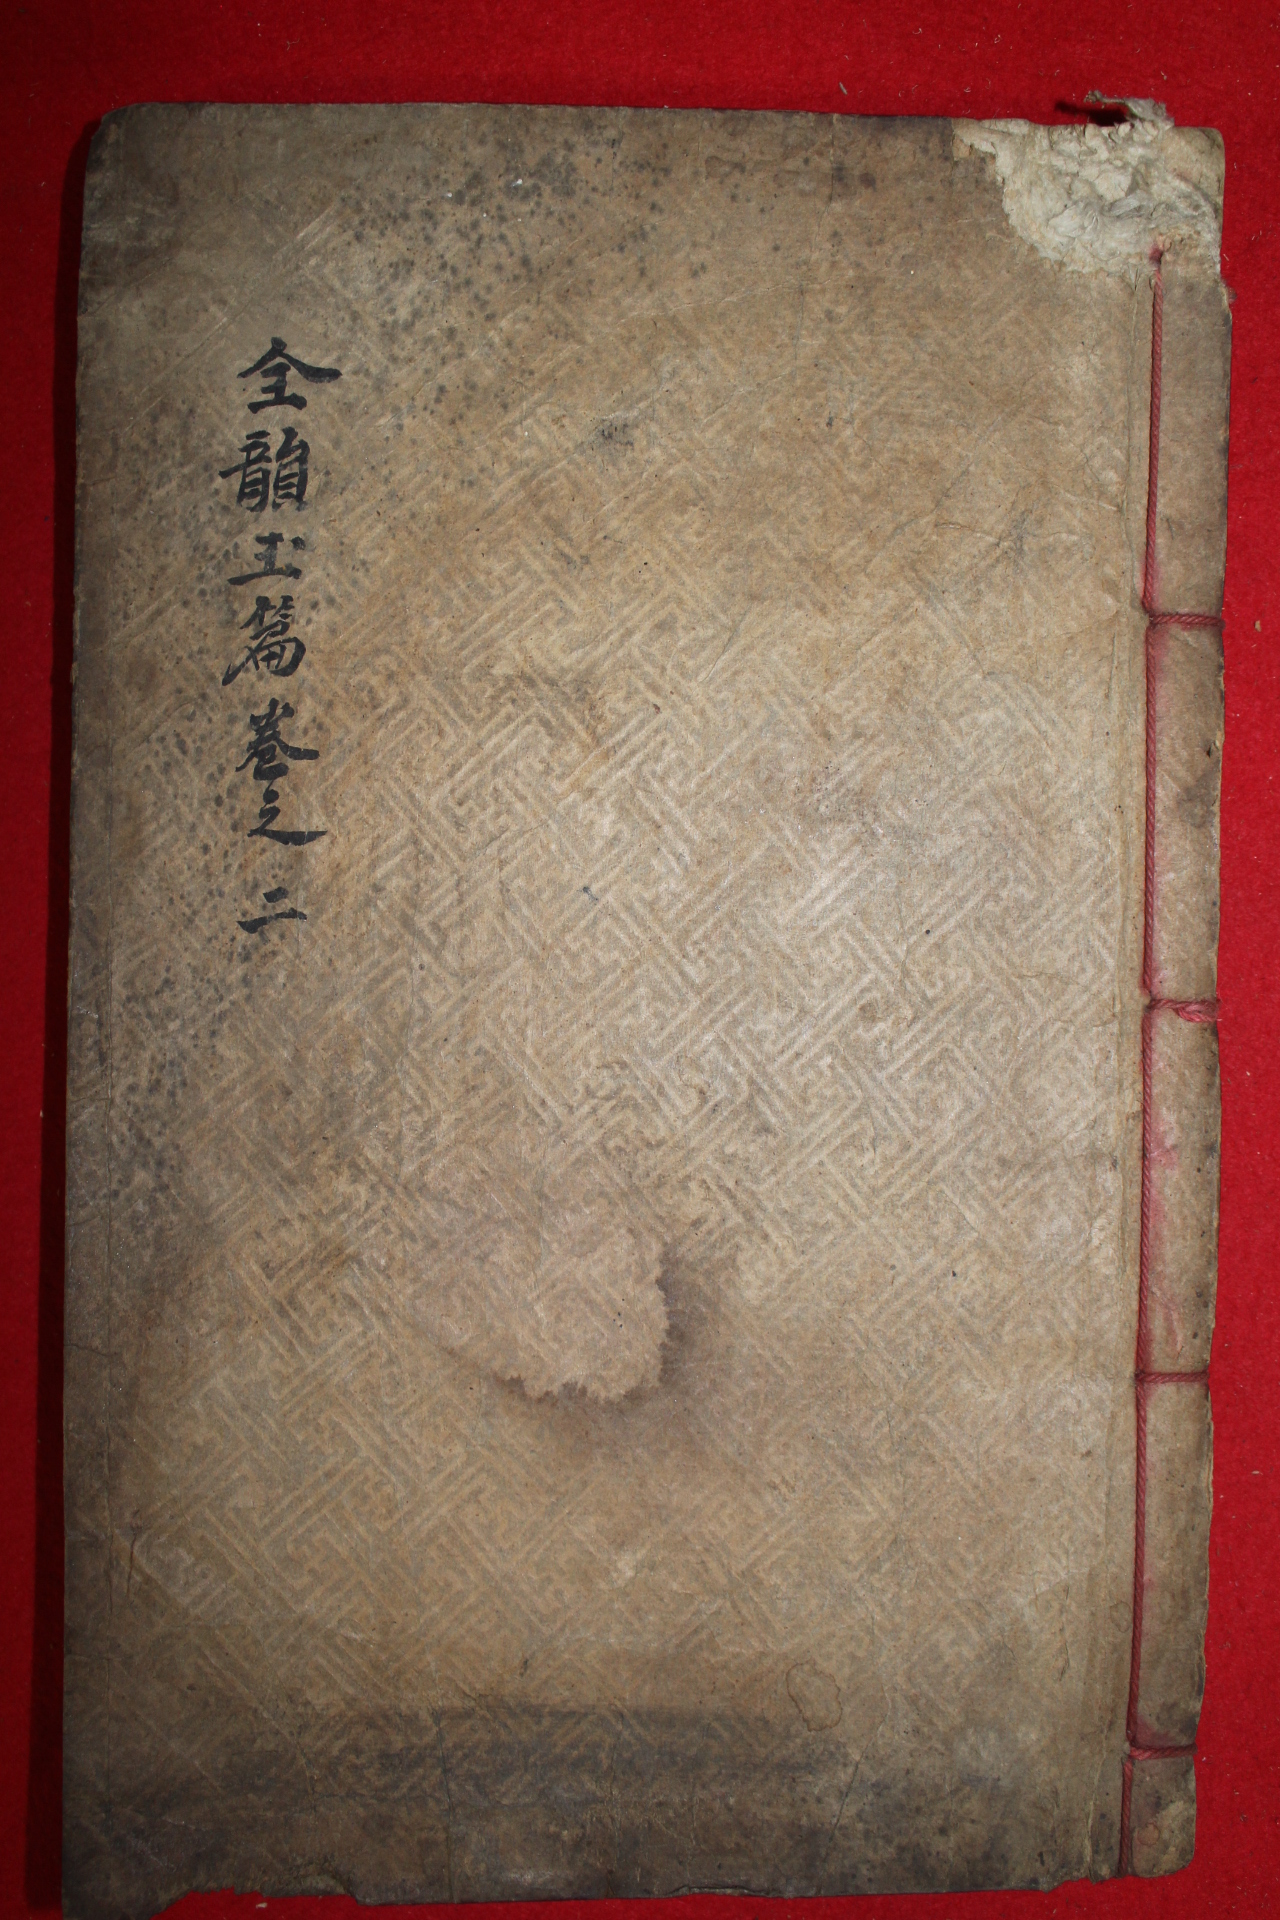 全韻玉篇 卷之二